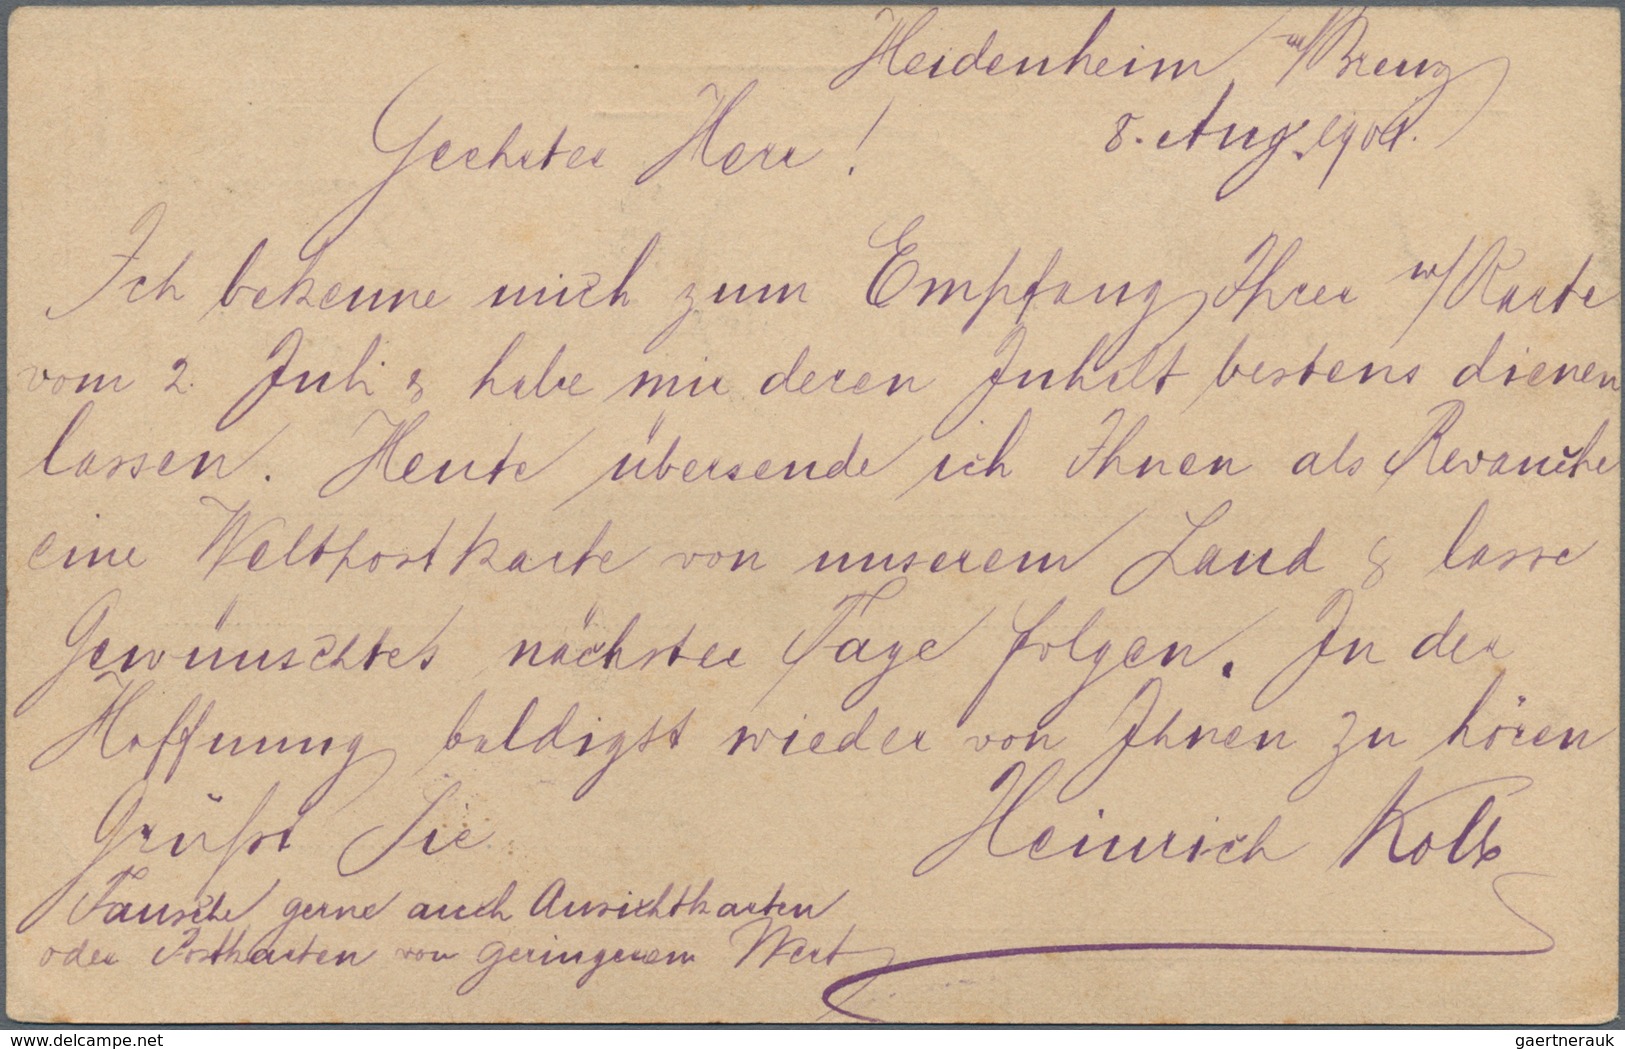 Heidenheim a/Brenz
8. Aug. 1901.
Geehrter Herr!
Ich bekenne mich zum Empfang Ihrer w/Karte
vom 2. Juli & habe mir deren Inhalt bestens dienen
lassen. Heute übersende ich Ihnen als Revanche
eine Weltpostkarte von unserem Land & lasse
Gewünschtes nächster Tage folgen. In der
Hoffnung baldigst wieder von Ihnen zu hören
Grüßt Sie
Heinrich Kolb
Tausche gerne auch Ansichtkarten
oder Postkarten von geringerem Wert
www.delcampe.net
gaertnerauk